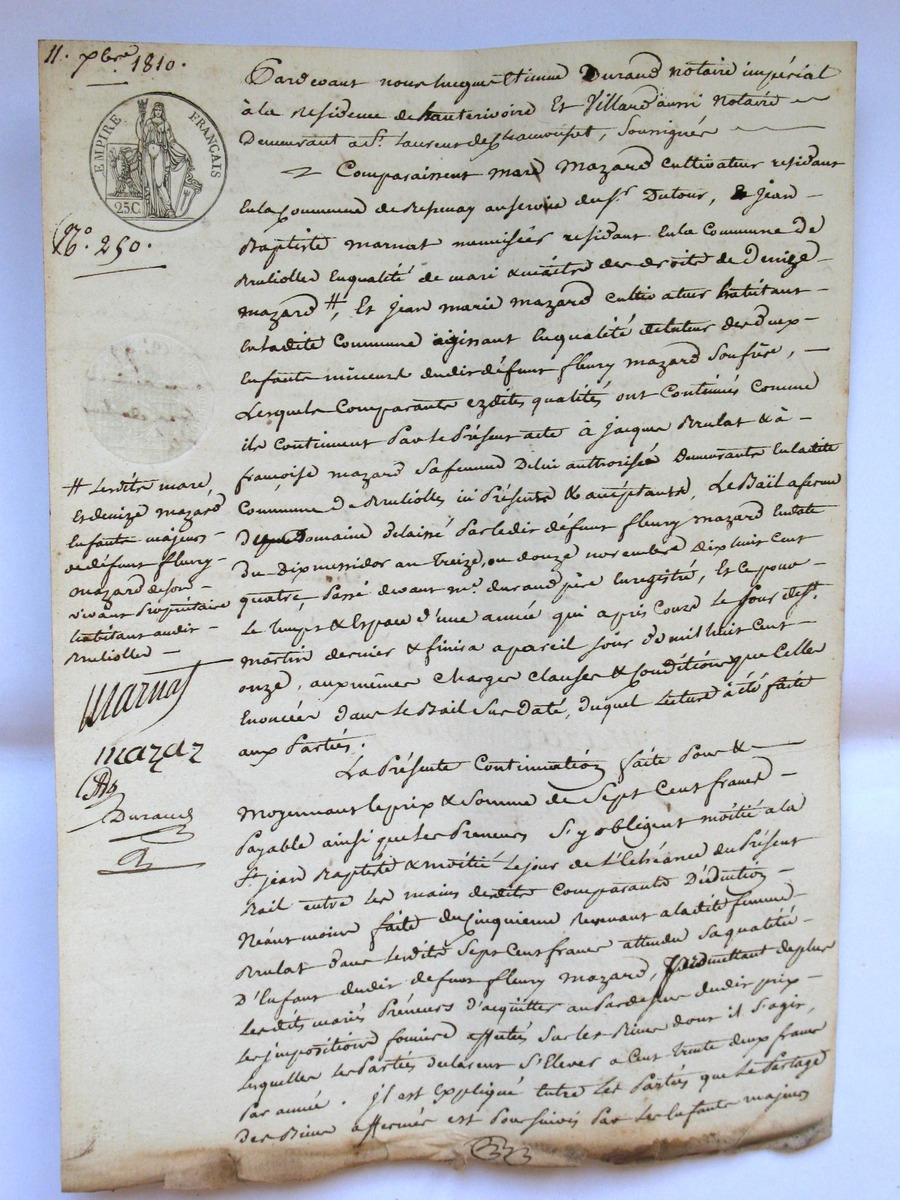 11. xbre 1810.
EMPIRE FRANÇAIS
25C.
N.° 250.
Pardevant nous Etienne Durand notaire impérial
à la residence de hauterivoire Et Villard aussi Notaire
Demeurant a St. Laurent de Chamousset, Soussignés
Comparaissent maré mazard cultivateur residant
En la Commune de au service du Sr. Dutour, Et Jean
Baptiste marnat menuisier residant En la Commune de
Bruliolles En qualité de mari & maître des droits de Denize
mazard #, Et Jean marie mazard cultivateur habitant
En ladite Commune agissant En qualité de tuteur des deux
Enfants mineurs dudit défunt fleury mazard Son frère,
Lesquels Comparants ezdites qualités ont Continués Comme
ils Continuent Par le Présent acte à Jacque Brulat & à
françoise mazard Sa femme De lui authorisée Demeurants En ladite
Commune de Brulliolles ici Présents & acceptants, Le Bail a ferme
Du Domaine délaissé Par ledit défunt fleury mazard En date
Du Dix messidor an treize, ou douze novembre dix huit Cent
quatre, Passé devant me. durand père Enregistré, Et Ce pour
Le temps & Espace d'une année qui a pris Cours Le Jour de St.
martin dernier & finira a pareil Jour de mil huit Cent
onze, aux mêmes Charges Clauses & Conditions que Celles
Enoncées dans Le Bail Sus Daté, duquel Lecture a été faite
aux Parties.
La Présente Continuation faite Pour &
Moyennant le prix & Somme de Sept Cent francs
Payable ainsi que les Preneurs S'y obligent moitié a la
St. Jean Baptiste & moitié Le jour de L'Echéance du Présent
Bail entre les mains desdits Comparants Déduction
Néantmoins faite du Cinquieme revenant a ladite femme
Brulat dans lesdits Sept Cent francs attendu Sa qualité
D'Enfant dudit défunt fleury mazard, Promettant de plus
Lesdits mariés Preneurs D'acquitter au Par dessus dudit prix
Les impositions foncières affectés Sur les Biens dont il S'agit,
Lesquelles les Parties déclarent S'Elever a Cent trente deux francs
Par année. Il est Expliqué Entre Les Parties que Le Partage
Des Biens affermés est Poursuivis Par les Enfants majeurs
# Lesdits maré,
Et denize mazard
Enfants majeurs
de défunt fleury
mazard de son
vivant Propriétaire
habitant audit
Brulliolles
Marnat
mazar
Durand